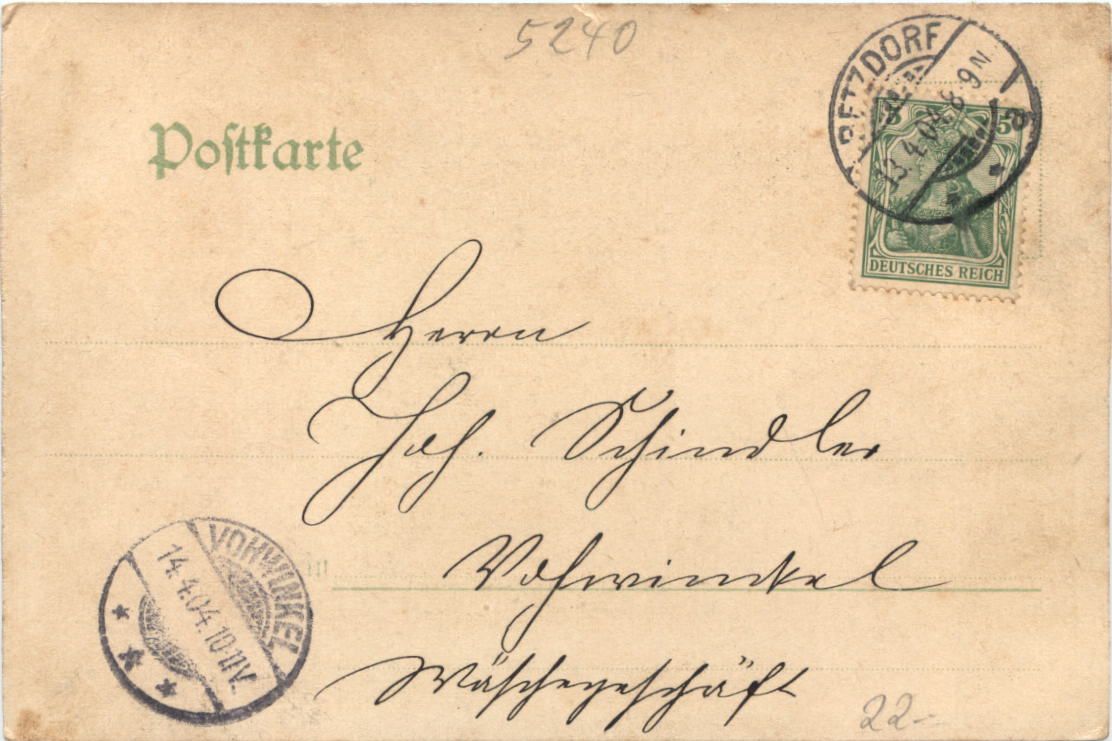 5240
BETZDORF
13.4.04. 8-9 N
Postkarte
5
DEUTSCHES REICH
Herrn
Joh. Schindler
in
Vohwinkel
VOHWINKEL
14.4.04.10-11V.
Wäschegeschäft
22-